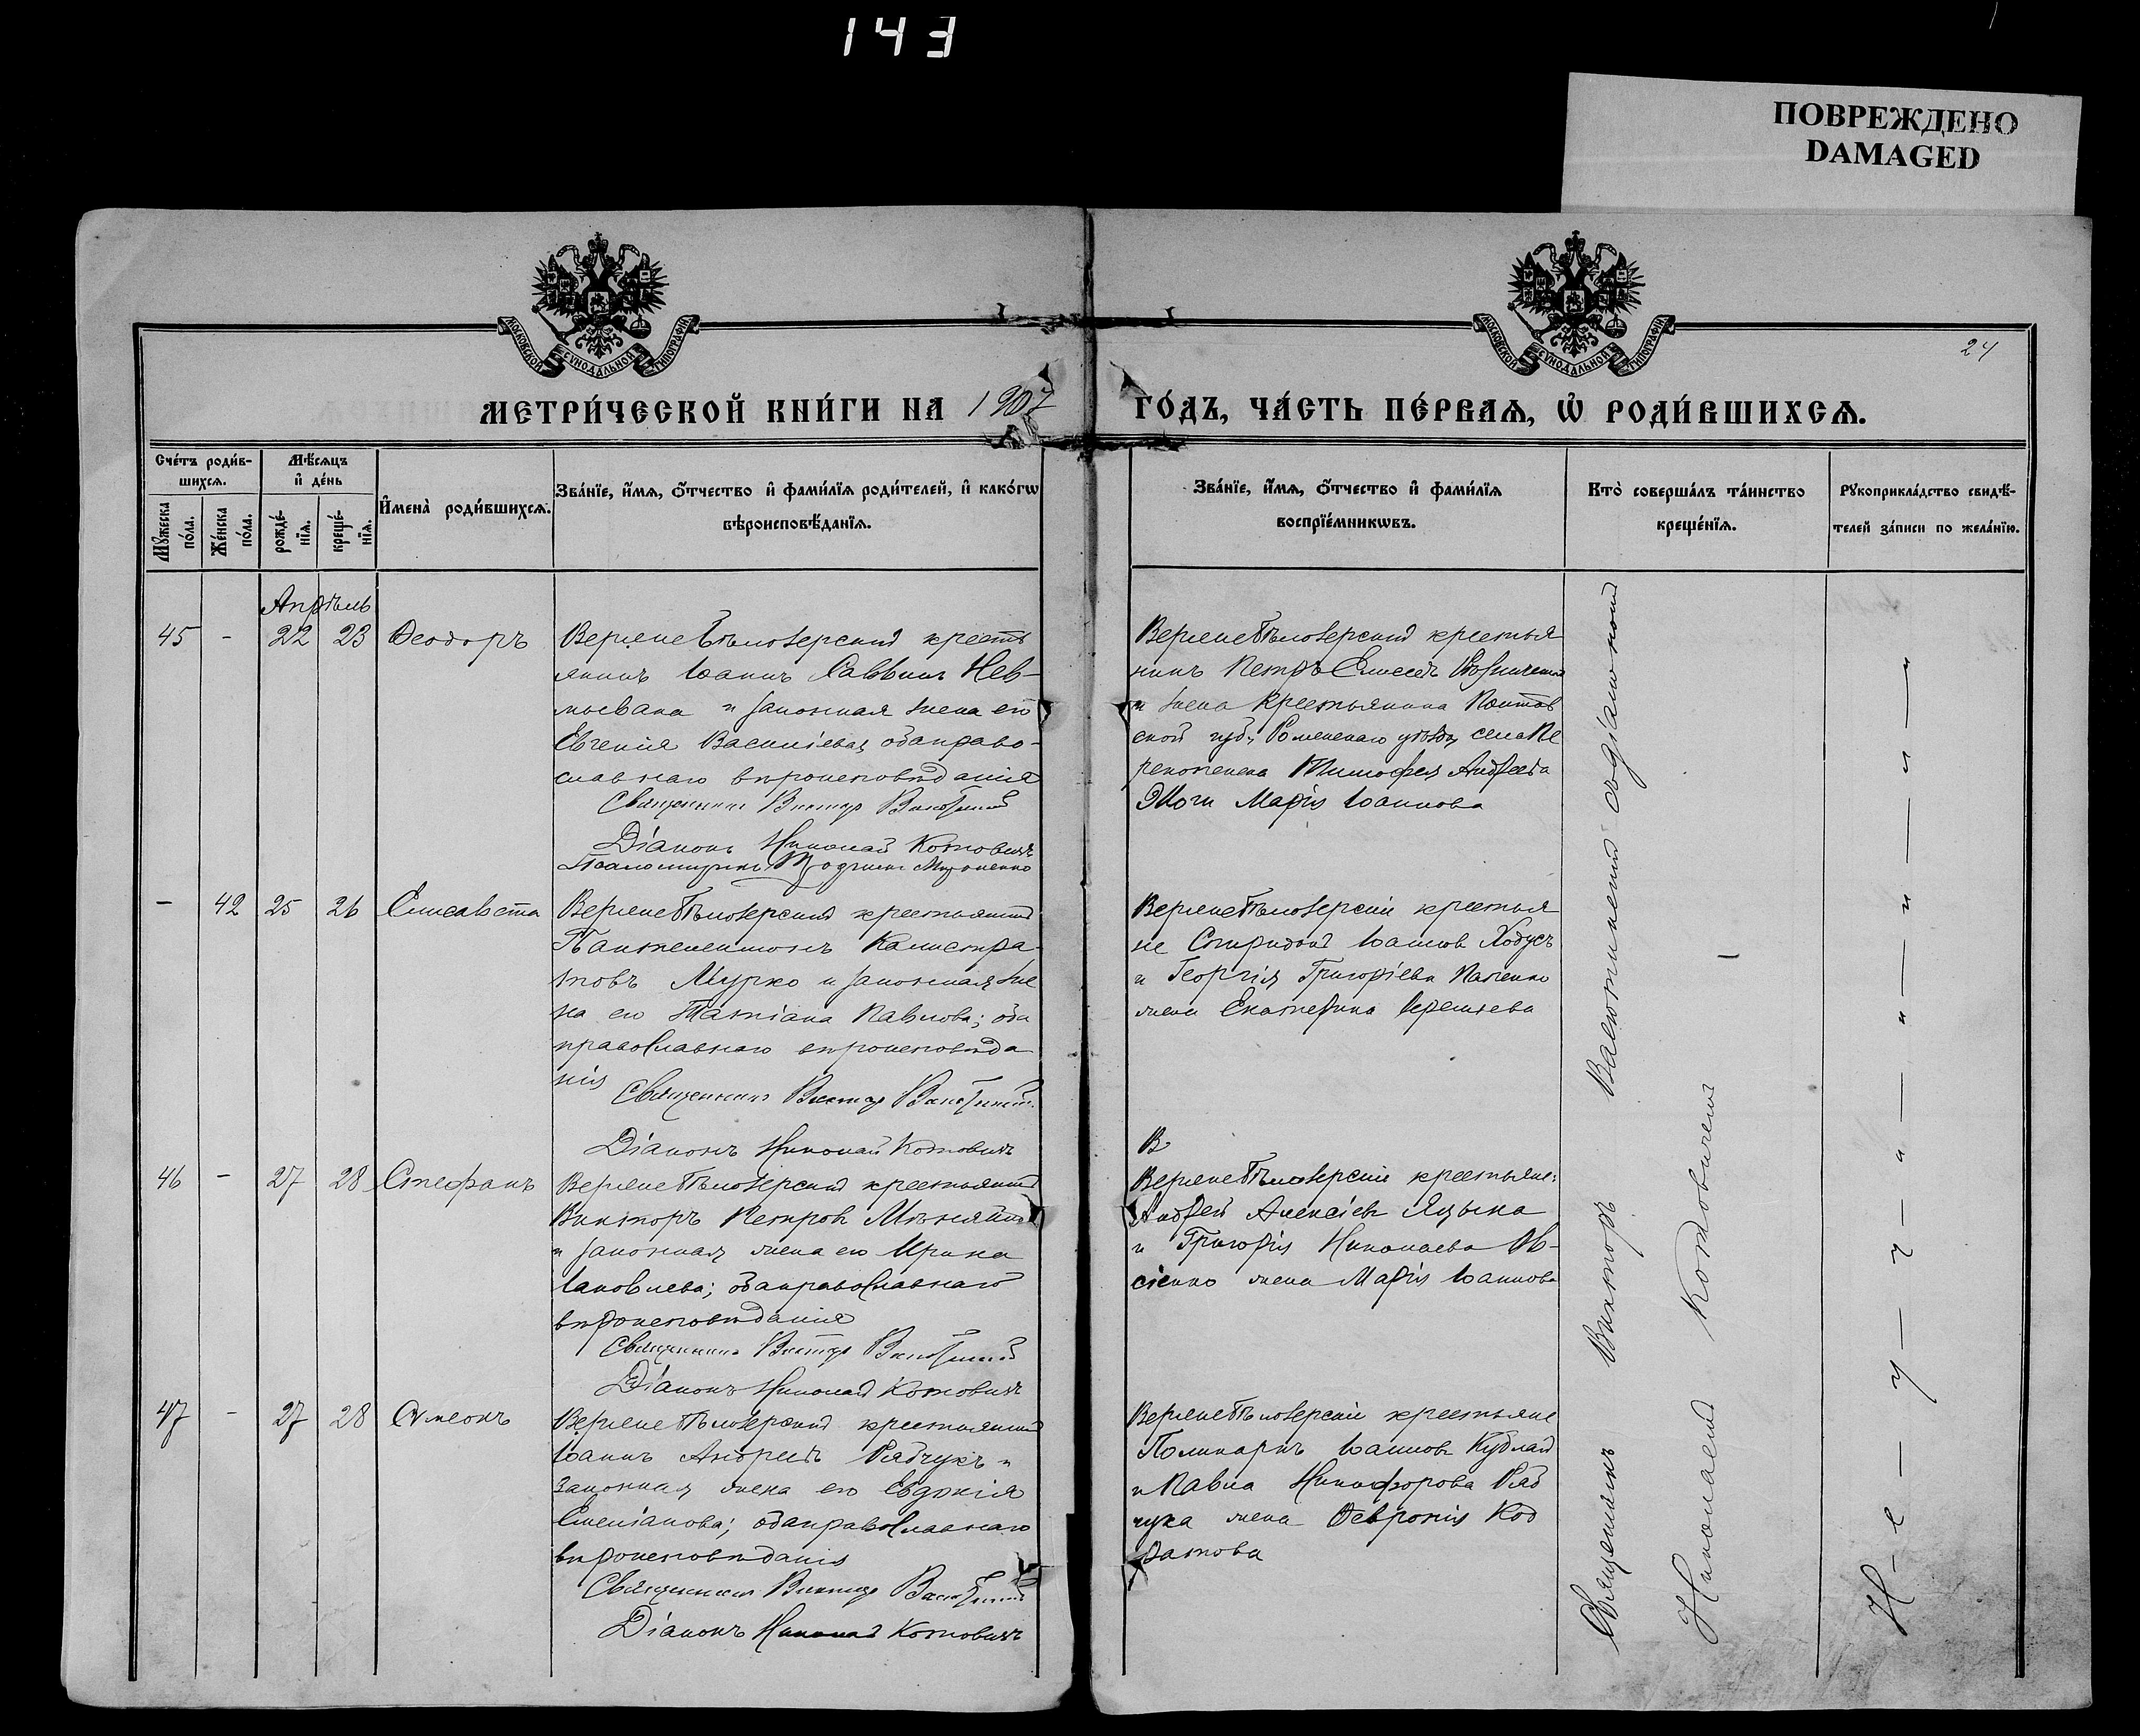 143
ПОВРЕЖДЕНО
DAMAGED
МОСКОВСКОЙ СѴНОДАЛЬНОЙ ТИПОГРАФІИ
МОСКОВСКОЙ СѴНОДАЛЬНОЙ ТИПОГРАФІИ
24
МЕТРИ́ЧЕСКОЙ КНИ́ГИ НА 1907 ГО́ДЪ, ЧА́СТЬ ПЕ́РВАѦ, Ѡ҆ РОДИ́ВШИХСѦ.
Сче́тъ роди́в-
шихсѧ.
Мꙋжеска по́ла.
Же́нска по́ла.
Мѣ́сѧцъ
и҆ де́нь
рожде́-
нїѧ.
креще́-
нїѧ.
И҆мена̀ роди́вшихсѧ.
Зва́нїе, и҆́мѧ, ѻ҆́тчество и҆ фами́лїѧ роди́телей, и҆ како́гѡ
вѣроисповѣ́данїѧ.
Зва́нїе, и҆́мѧ, ѻ҆́тчество и҆ фами́лїѧ
воспрїе́мникѡвъ.
Кто̀ соверша́лъ та́инство
креще́нїѧ.
Рꙋкоприкла́дство свидѣ́-
телей за́писи по жела́нїю.
Апрѣль
45 - 22 23 Ѳеодоръ
Верхне Бѣлозерскій кресть
янинъ Іоаннъ Саввинъ Нев-
мывака и законная жена его
Евгенія Василіева, оба право-
славнаго вѣроисповѣданія
Священникъ Викторъ
Діаконъ Николай Котовичъ
Псаломщикъ
Верхне Бѣлозерскій крестья
нинъ Петръ Елисеевъ
и жена крестьянина Полтав
ской губ., Роменскаго уѣзда, села Пе
рекоповка Тимофея Андреева
Марія Іоаннова
- 42 25 26 Елисавета
Верхне Бѣлозерскій крестьянинъ
Пантелеимонъ Калистра
товъ Мурко и законная же
на его Татіана Павлова; оба
православнаго вѣроисповѣда
нія
Священникъ Викторъ
Діаконъ Николай Котовичъ
Верхне Бѣлозерскіе крестья
не Спиридонъ Іоанновъ Ходусъ
и Георгія Григоріева
жена Екатерина
46 - 27 28 Стефанъ
Верхне Бѣлозерскій крестьянинъ
Викторъ Петровъ
и законная жена его Ирина
Іаковлева; оба православнаго
вѣроисповѣданія
Священникъ Викторъ
Діаконъ Николай Котовичъ
В
Верхне Бѣлозерскіе крестьяне:
Андрей Алексіевъ Языка
и Григорія Николаева Ов-
сіенко жена Марія Іоаннова
47 - 27 28 Сѵмеонъ
Верхне Бѣлозерскій крестьянинъ
Іоаннъ Андреевъ Рябчукъ и
законная жена его Евдокія
Емеліанова; оба православнаго
вѣроисповѣданія
Священникъ Викторъ
Діаконъ Николай Котовичъ
Верхне Бѣлозерскіе крестьяне
Поликарпъ Іоанновъ Кудлай
и Павла Никифорова Ряб
чука жена Ѳевронія Код
ратова
Священникъ Викторъ
съ діакономъ
Николаемъ Котовичемъ